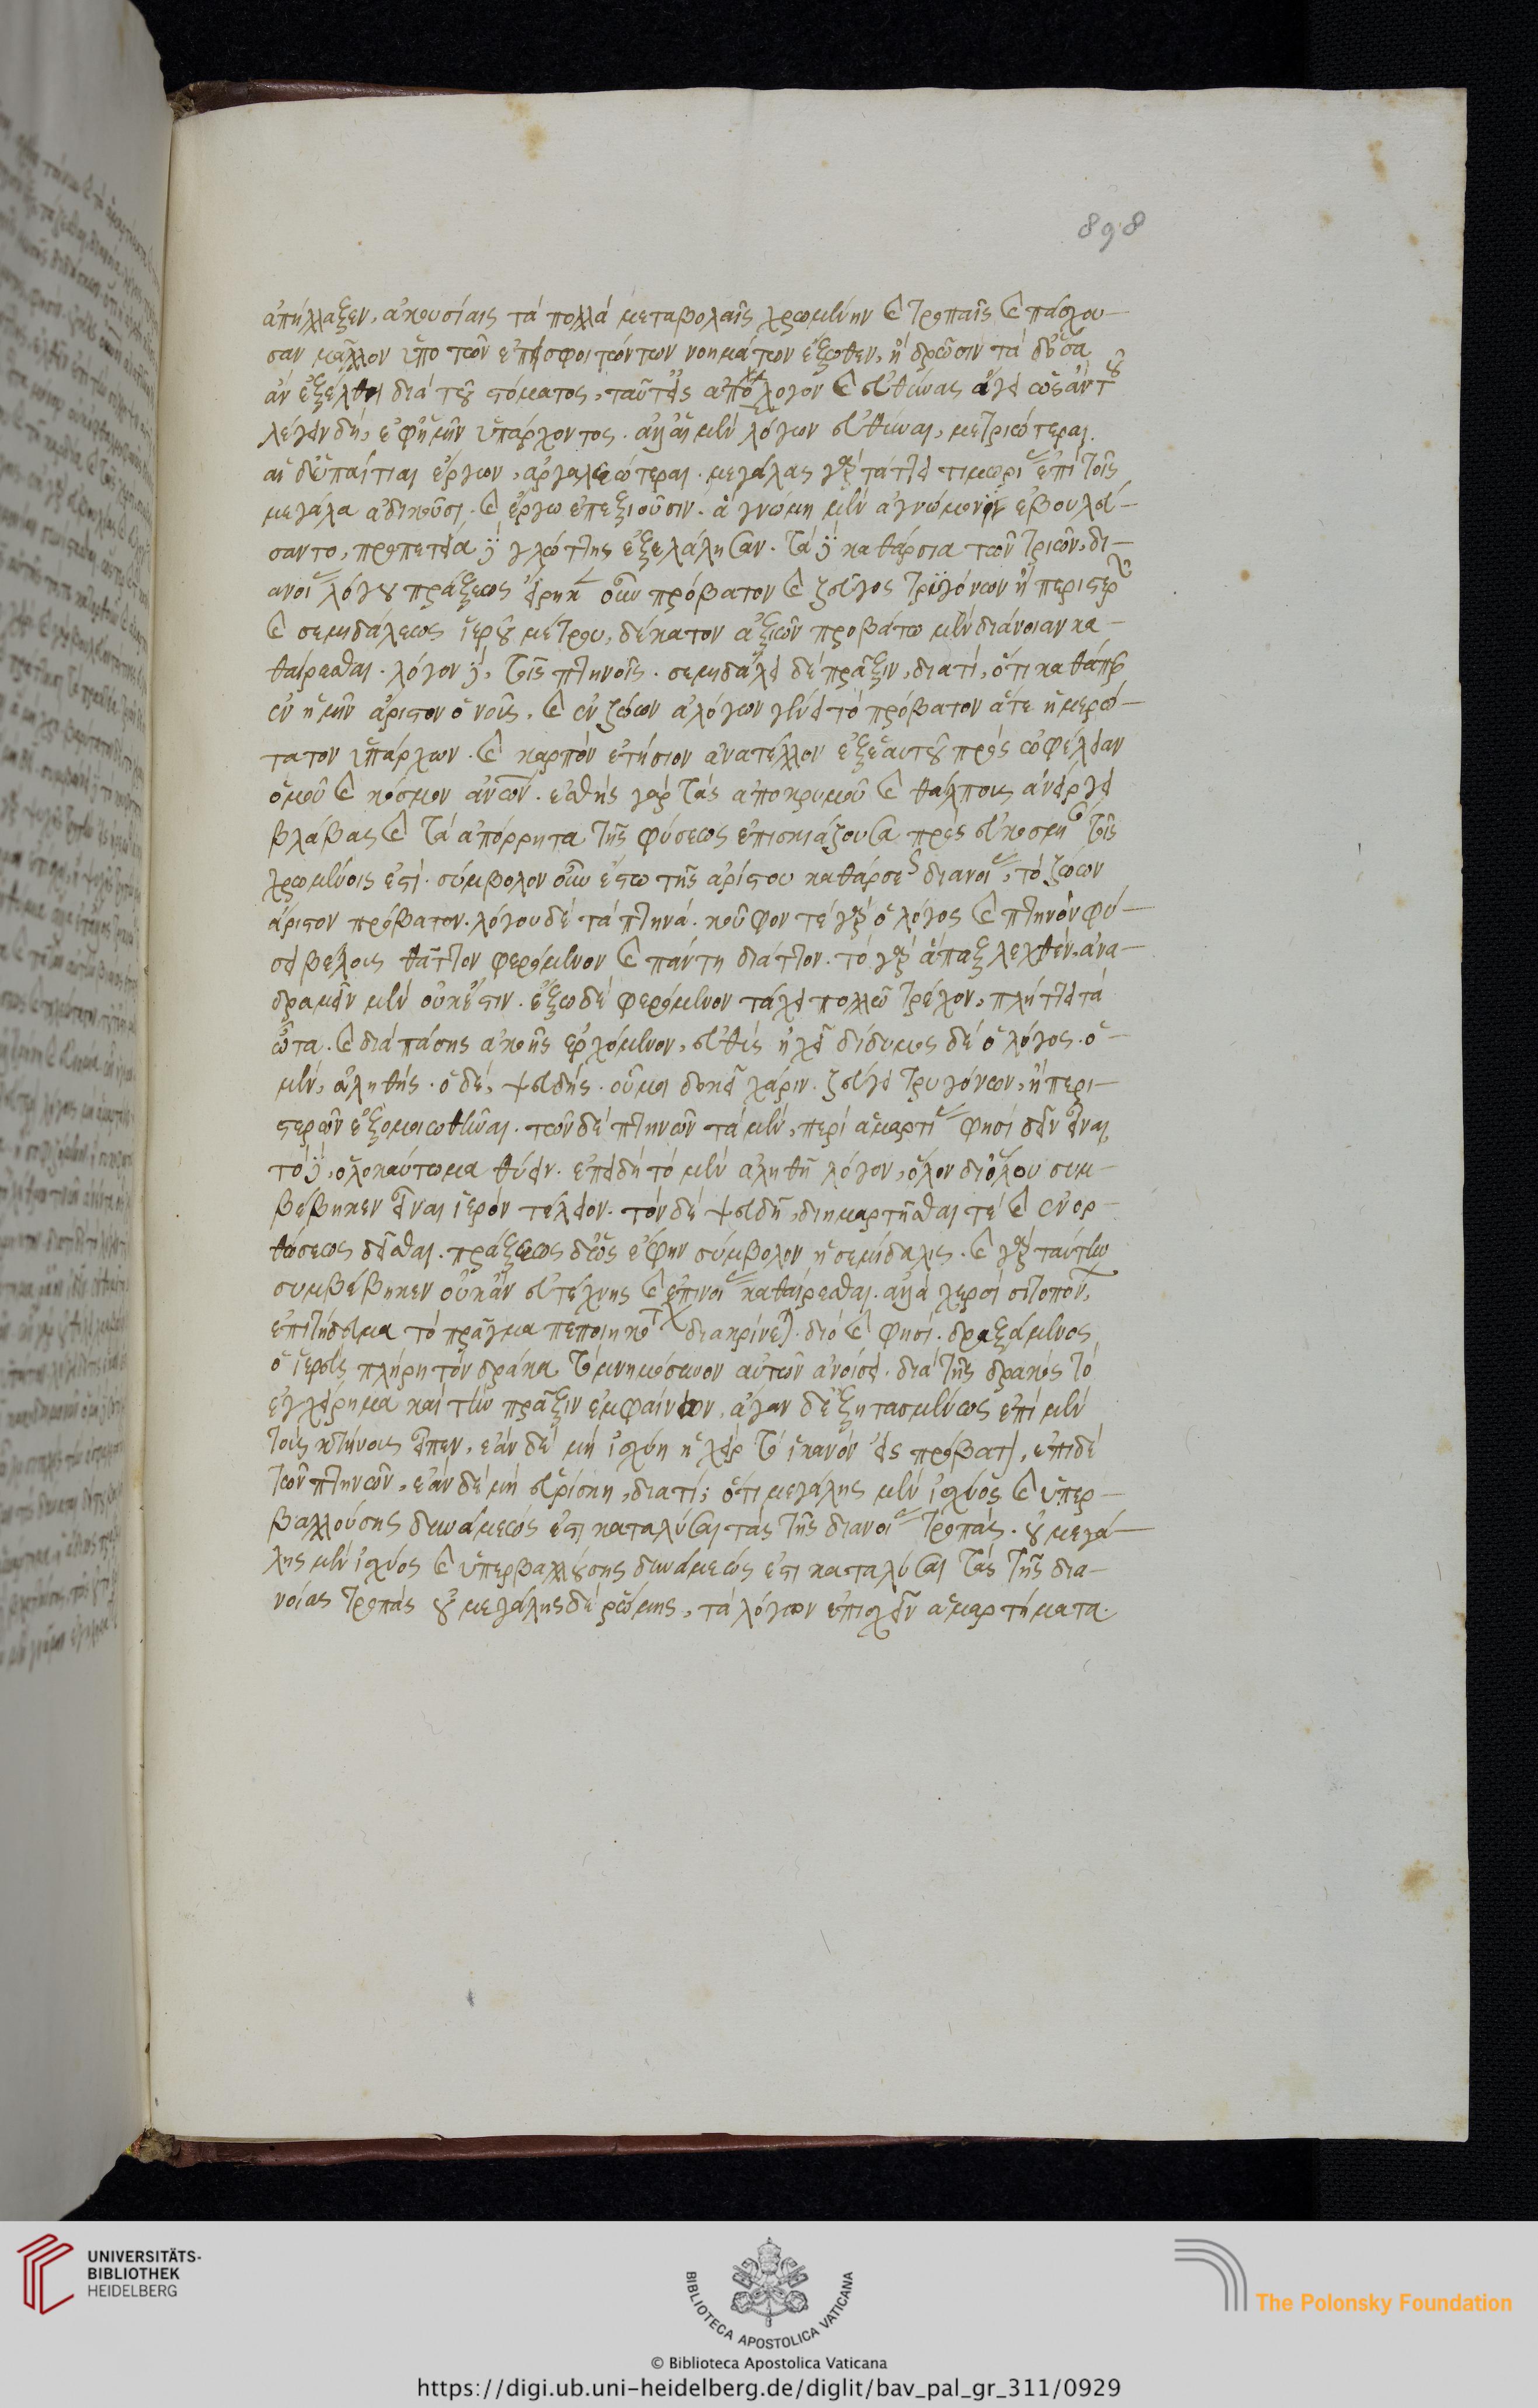 898
ἀπήλλαξεν, ἀκουσίαις τὰ πολλὰ μεταβολαῖς χρωμένην καὶ τροπαῖς καὶ πάσχου-
σαν μᾶλλον ὑπὸ τῶν ἐπεισφοιτώντων νοημάτων ἔξωθεν, ἢ δρῶσιν τὰ δ' ὅσα
ἂν ἐξέλθῃ διὰ τοῦ στόματος, ταῦτ' εἰς λόγον καὶ εὐθύνας ἄγει ὡς ἂν τοῦ
λέγειν δὴ, ἐφ' ἡμῖν ὑπάρχοντος. ἀλλ' αἱ μὲν λόγων εὔθυναι, μετριώτεραι.
αἱ δ' ὑπαίτιαι ἔργων, ἀργαλεώτεραι. μεγάλας γὰρ τάττει τιμωρίας ἐπὶ τοῖς
μεγάλα ἀδικοῦσι. καὶ ἔργω ἐπεξιοῦσιν. ἃ γνώμη μὲν ἀγνώμονι ἐβουλεύ-
σαντο, προπετεία δὲ γλώττης ἐξελάλησαν. τὰ δὲ καθάρσια τῶν τριῶν, δι-
ανοίας λόγου πράξεως εἴρηκεν οὖν πρόβατον καὶ ζεῦγος τρυγόνων ἢ περιστερῶν
καὶ σεμιδάλεως ἱεροῦ μέτρου, δέκατον ἀξιῶν προβάτω μὲν διάνοιαν κα-
θαίρεσθαι. λόγον δὲ, τοῖς πτηνοῖς. σεμιδάλει δὲ πρᾶξιν, διατί, ὅτι καθάπερ
ἐν ἡμῖν ἄριστον ὁ νοῦς, καὶ ἐν ζώων ἀλόγων γένει τὸ πρόβατον ἅτε ἡμερώ-
τατον ὑπάρχων. καὶ καρπὸν ἐτήσιον ἀνατέλλον ἐξ ἑαυτοῦ πρὸς ὠφέλειαν
ὁμοῦ καὶ κόσμον ἀνθρώπων. ἐσθὴς γὰρ τὰς ἀπὸ κρυμοῦ καὶ θάλπους ἀνείργει
βλάβας καὶ τὰ ἀπόρρητα τῆς φύσεως ἐπισκιάζουσα πρὸς εὐκοσμίαν τοῖς
χρωμένοις ἐστί. σύμβολον οὖν ἔστω τῆς ἀρίστου καθάρσεως διανοίας, τὸ ζώων
ἄριστον πρόβατον. λόγου δὲ τὰ πτηνά. κοῦφον τὲ γὰρ ὁ λόγος καὶ πτηνὸν φύ-
σει βέλους θᾶττον φερόμενον καὶ πάντη διᾶττον. τὸ γὰρ ἅπαξ λεχθὲν, ἀνα-
δραμεῖν μὲν οὐκ ἔστιν. ἔξω δὲ φερόμενον τάχει πολλῶ τρέχον, πλήττει τὰ
ὦτα. καὶ διὰ πάσης ἀκοῆς ἐρχόμενον, εὐθὺς ἠχεῖ δίδυμος δὲ ὁ λόγος. ὁ
μὲν, ἀληθής. ὁ δὲ, ψευδής. οὗ μοι δοκεῖ χάριν. ζεύγει τρυγόνων, ἢ περι-
στερῶν ἐξομοιωθῆναι. τῶν δὲ πτηνῶν τὰ μὲν, περὶ ἁμαρτίας φησὶ δεῖν εἶναι
τὸ δὲ, ὁλοκαύτωμα θύειν. ἐπειδὴ τὸ μὲν ἀληθῆ λόγον, ὅλον δι' ὅλου συμ-
βέβηκεν εἶναι ἱερὸν τέλειον. τὸν δὲ ψευδῆ, διημαρτῆσθαι τὲ καὶ ἐνορ-
θώσεως δεῖσθαι. πράξεως δ' ὡς ἔφην σύμβολον ἡ σεμίδαλις. καὶ γὰρ ταύτην
συμβέβηκεν οὐκ ἂν εὐτέχνης καὶ ἐπινοίας καθαίρεσθαι. ἀλλὰ χερσὶ σιτοπόν,
ἐπιτήδευμα τὸ πρᾶγμα πεποιηκότων διακρίνεται. διὸ καὶ φησί. δραξάμενος
ὁ ἱερεὺς πλήρη τὸν δράκα τὸ μνημόσυνον αὐτῶν ἀνοίσει. διὰ τῆς δρακὸς τὸ
ἐγχείρημα καὶ τὴν πρᾶξιν ἐμφαίνων, ἄγαν δ' ἐξητασμένως ἐπὶ μὲν
τοῖς κτήνοις εἶπεν, ἐὰν δὲ μὴ ἰσχύη ἡ χεὶρ τὸ ἱκανὸν εἰς πρόβατον, ἐπὶ δὲ
τῶν πτηνῶν, ἐὰν δὲ μὴ εὑρίσκη, διατί; ὅτι μεγάλης μὲν ἰσχύος καὶ ὑπερ-
βαλλούσης δυνάμεώς ἐστι καταλῦσαι τὰς τῆς διανοίας τροπάς. οὐ μεγά-
λης μὲν ἰσχύος καὶ ὑπερβαλλούσης δυνάμεώς ἐστι καταλῦσαι τὰς τῆς δια-
νοίας τροπὰς οὐ μεγάλης δὲ ῥώμης, τὰ λόγων ἐπισχεῖν ἁμαρτήματα.
UNIVERSITÄTS-
BIBLIOTHEK
HEIDELBERG
BIBLIOTECA APOSTOLICA VATICANA
The Polonsky Foundation
© Biblioteca Apostolica Vaticana
https://digi.ub.uni-heidelberg.de/diglit/bav_pal_gr_311/0929